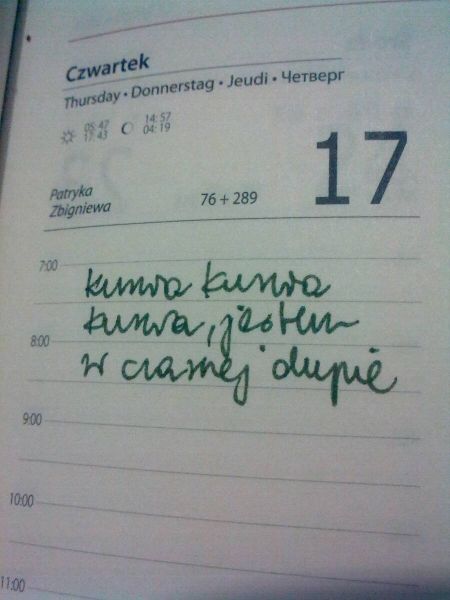 Czwartek
Thursday • Donnerstag • Jeudi • Четверг
05:47 14:57
17:43 04:19
17
Patryka
Zbigniewa
76 + 289
7:00
kurwa kurwa
kurwa, jestem
8:00
w czarnej dupie
9:00
10:00
11:00